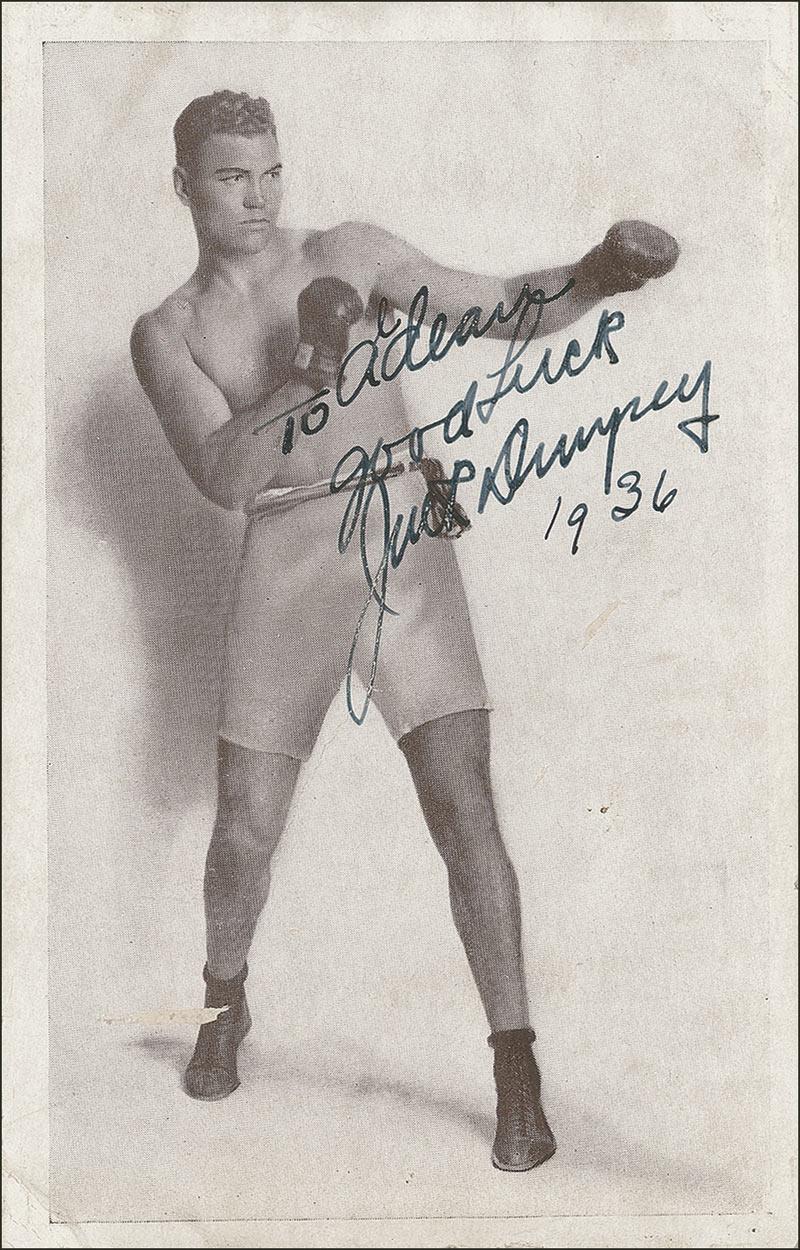 To Adeana
Good Luck
Jack Dempsey
1936